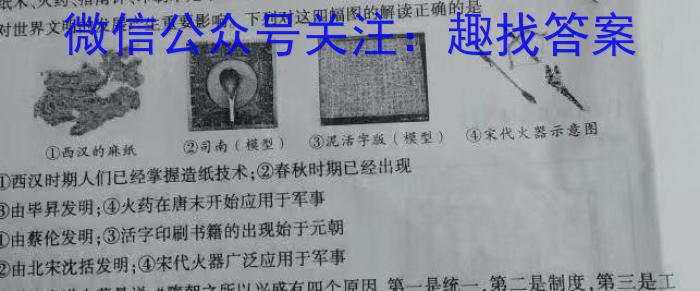 纸术、火药、指南针、印刷术
对世界文明的发展产生重要影响。下列对这四幅图的解读正确的是
微信公众号关注：趣找答案
①西汉的麻纸 ②司南（模型） ③泥活字版（模型） ④宋代火器示意图
①西汉时期人们已经掌握造纸技术；②春秋时期已经出现
③由毕昇发明；④火药在唐末开始应用于军事
①由蔡伦发明；③活字印刷书籍的出现始于元朝
②由北宋沈括发明；④宋代火器广泛应用于军事
隋朝之所以兴盛有四个原因，第一是统一，第二是制度，第三是工